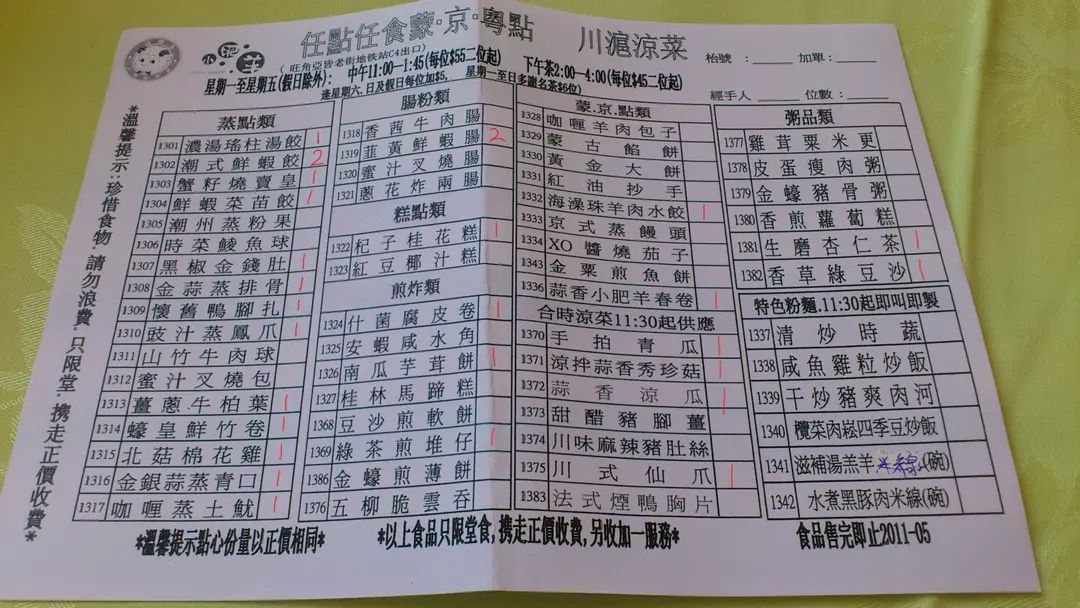 任點任食蒙·京·粵點 川滬涼菜
小肥羊
(旺角亞皆老街地鉄站C4出口)
枱號：____ 加單：____
星期一至星期五(假日除外)： 中午11:00—1:45(每位$55二位起) 下午茶2:00—4:00(每位$45二位起)
逢星期六.日及假日每位加$5, 星期一至日多謝名茶$6位)
經手人 ____ 位數：____
*溫馨提示:珍惜食物,請勿浪費,只限堂,携走正價收費*
蒸點類
1301 濃湯瑤柱湯餃 1
1302 潮式鮮蝦餃 2
1303 蟹籽燒賣皇 1
1304 鮮蝦菜苗餃 1
1305 潮州蒸粉果
1306 時菜鯪魚球
1307 黑椒金錢肚 1
1308 金蒜蒸排骨 1
1309 懷舊鴨腳扎 1
1310 豉汁蒸鳳爪 1
1311 山竹牛肉球
1312 蜜汁叉燒包
1313 薑蔥牛柏葉 1
1314 蠔皇鮮竹卷 1
1315 北菇棉花雞 1
1316 金銀蒜蒸青口 1
1317 咖喱蒸土魷 1
腸粉類
1318 香茜牛肉腸
1319 韮黃鮮蝦腸 2
1320 蜜汁叉燒腸
1321 蔥花炸兩腸
糕點類
1322 杞子桂花糕 1
1323 紅豆椰汁糕
煎炸類
1324 什菌腐皮卷 1
1325 安蝦咸水角
1326 南瓜芋茸餅 1
1327 桂林馬蹄糕
1368 豆沙煎軟餅
1369 綠茶煎堆仔 1
1386 金蠔煎薄餅
1376 五柳脆雲吞
蒙.京.點類
1328 咖喱羊肉包子
1329 蒙古餡餅
1330 黃金大餅
1331 紅油抄手
1332 海澡珠羊肉水餃 1
1333 京式蒸饅頭
1334 XO醬燒茄子
1343 金粟煎魚餅
1336 蒜香小肥羊春卷 1
合時涼菜11:30起供應
1370 手拍青瓜 1
1371 涼拌蒜香秀珍菇 1
1372 蒜香涼瓜 1
1373 甜醋豬腳薑
1374 川味麻辣豬肚絲
1375 川式仙爪 1
1383 法式煙鴨胸片
粥品類
1377 雞茸粟米更
1378 皮蛋瘦肉粥
1379 金蠔豬骨粥
1380 香煎蘿蔔糕
1381 生磨杏仁茶 1
1382 香草綠豆沙 1
特色粉麵.11:30起即叫即製
1337 清炒時蔬
1338 咸魚雞粒炒飯
1339 干炒豬爽肉河
1340 欖菜肉崧四季豆炒飯
1341 滋補湯羔羊(碗)
1342 水煮黑豚肉米線(碗)
*溫馨提示點心份量以正價相同*
*以上食品只限堂食,携走正價收費,另收加一服務*
食品售完即止2011-05